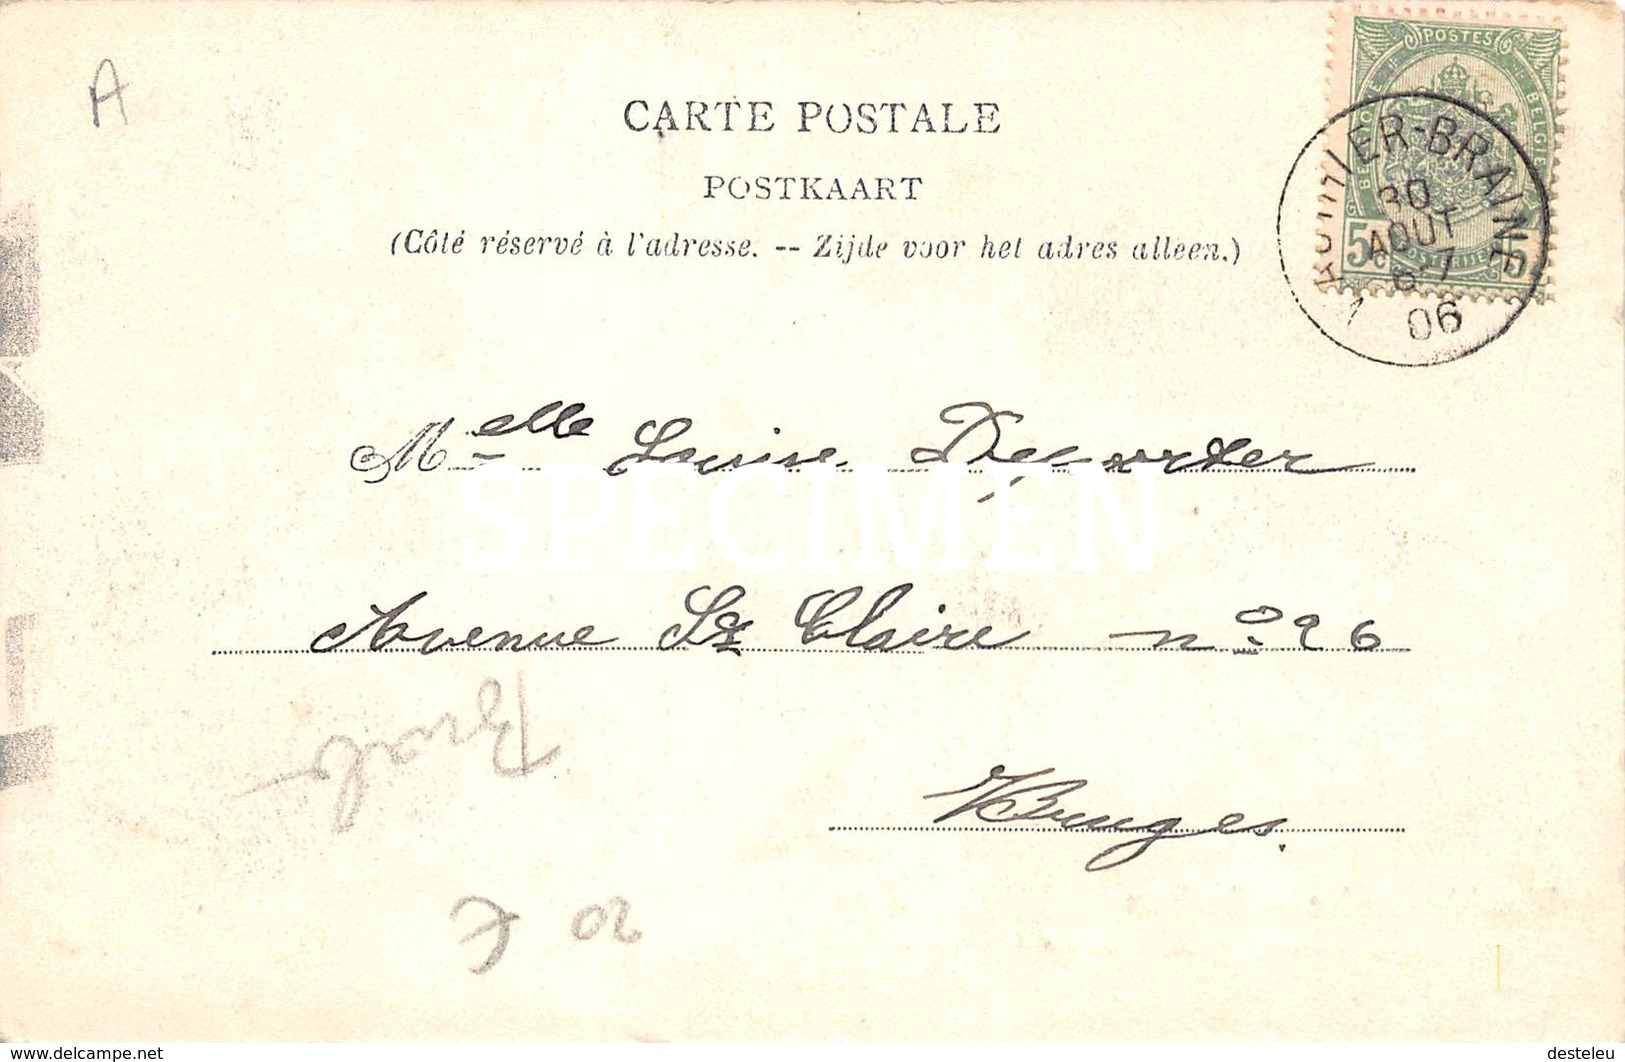 A
CARTE POSTALE
POSTKAART
(Côté réservé à l'adresse. -- Zijde voor het adres alleen.)
POSTES
BELGIQUE
BELGIË
5c POSTERIJEN 5
WAUTHIER-BRAINE
30
AOUT
6-7
06
Melle Louise Deporter
SPECIMEN
Avenue Ste Claire no 26
Bruges.
€ 20
www.delcampe.net
desteleu